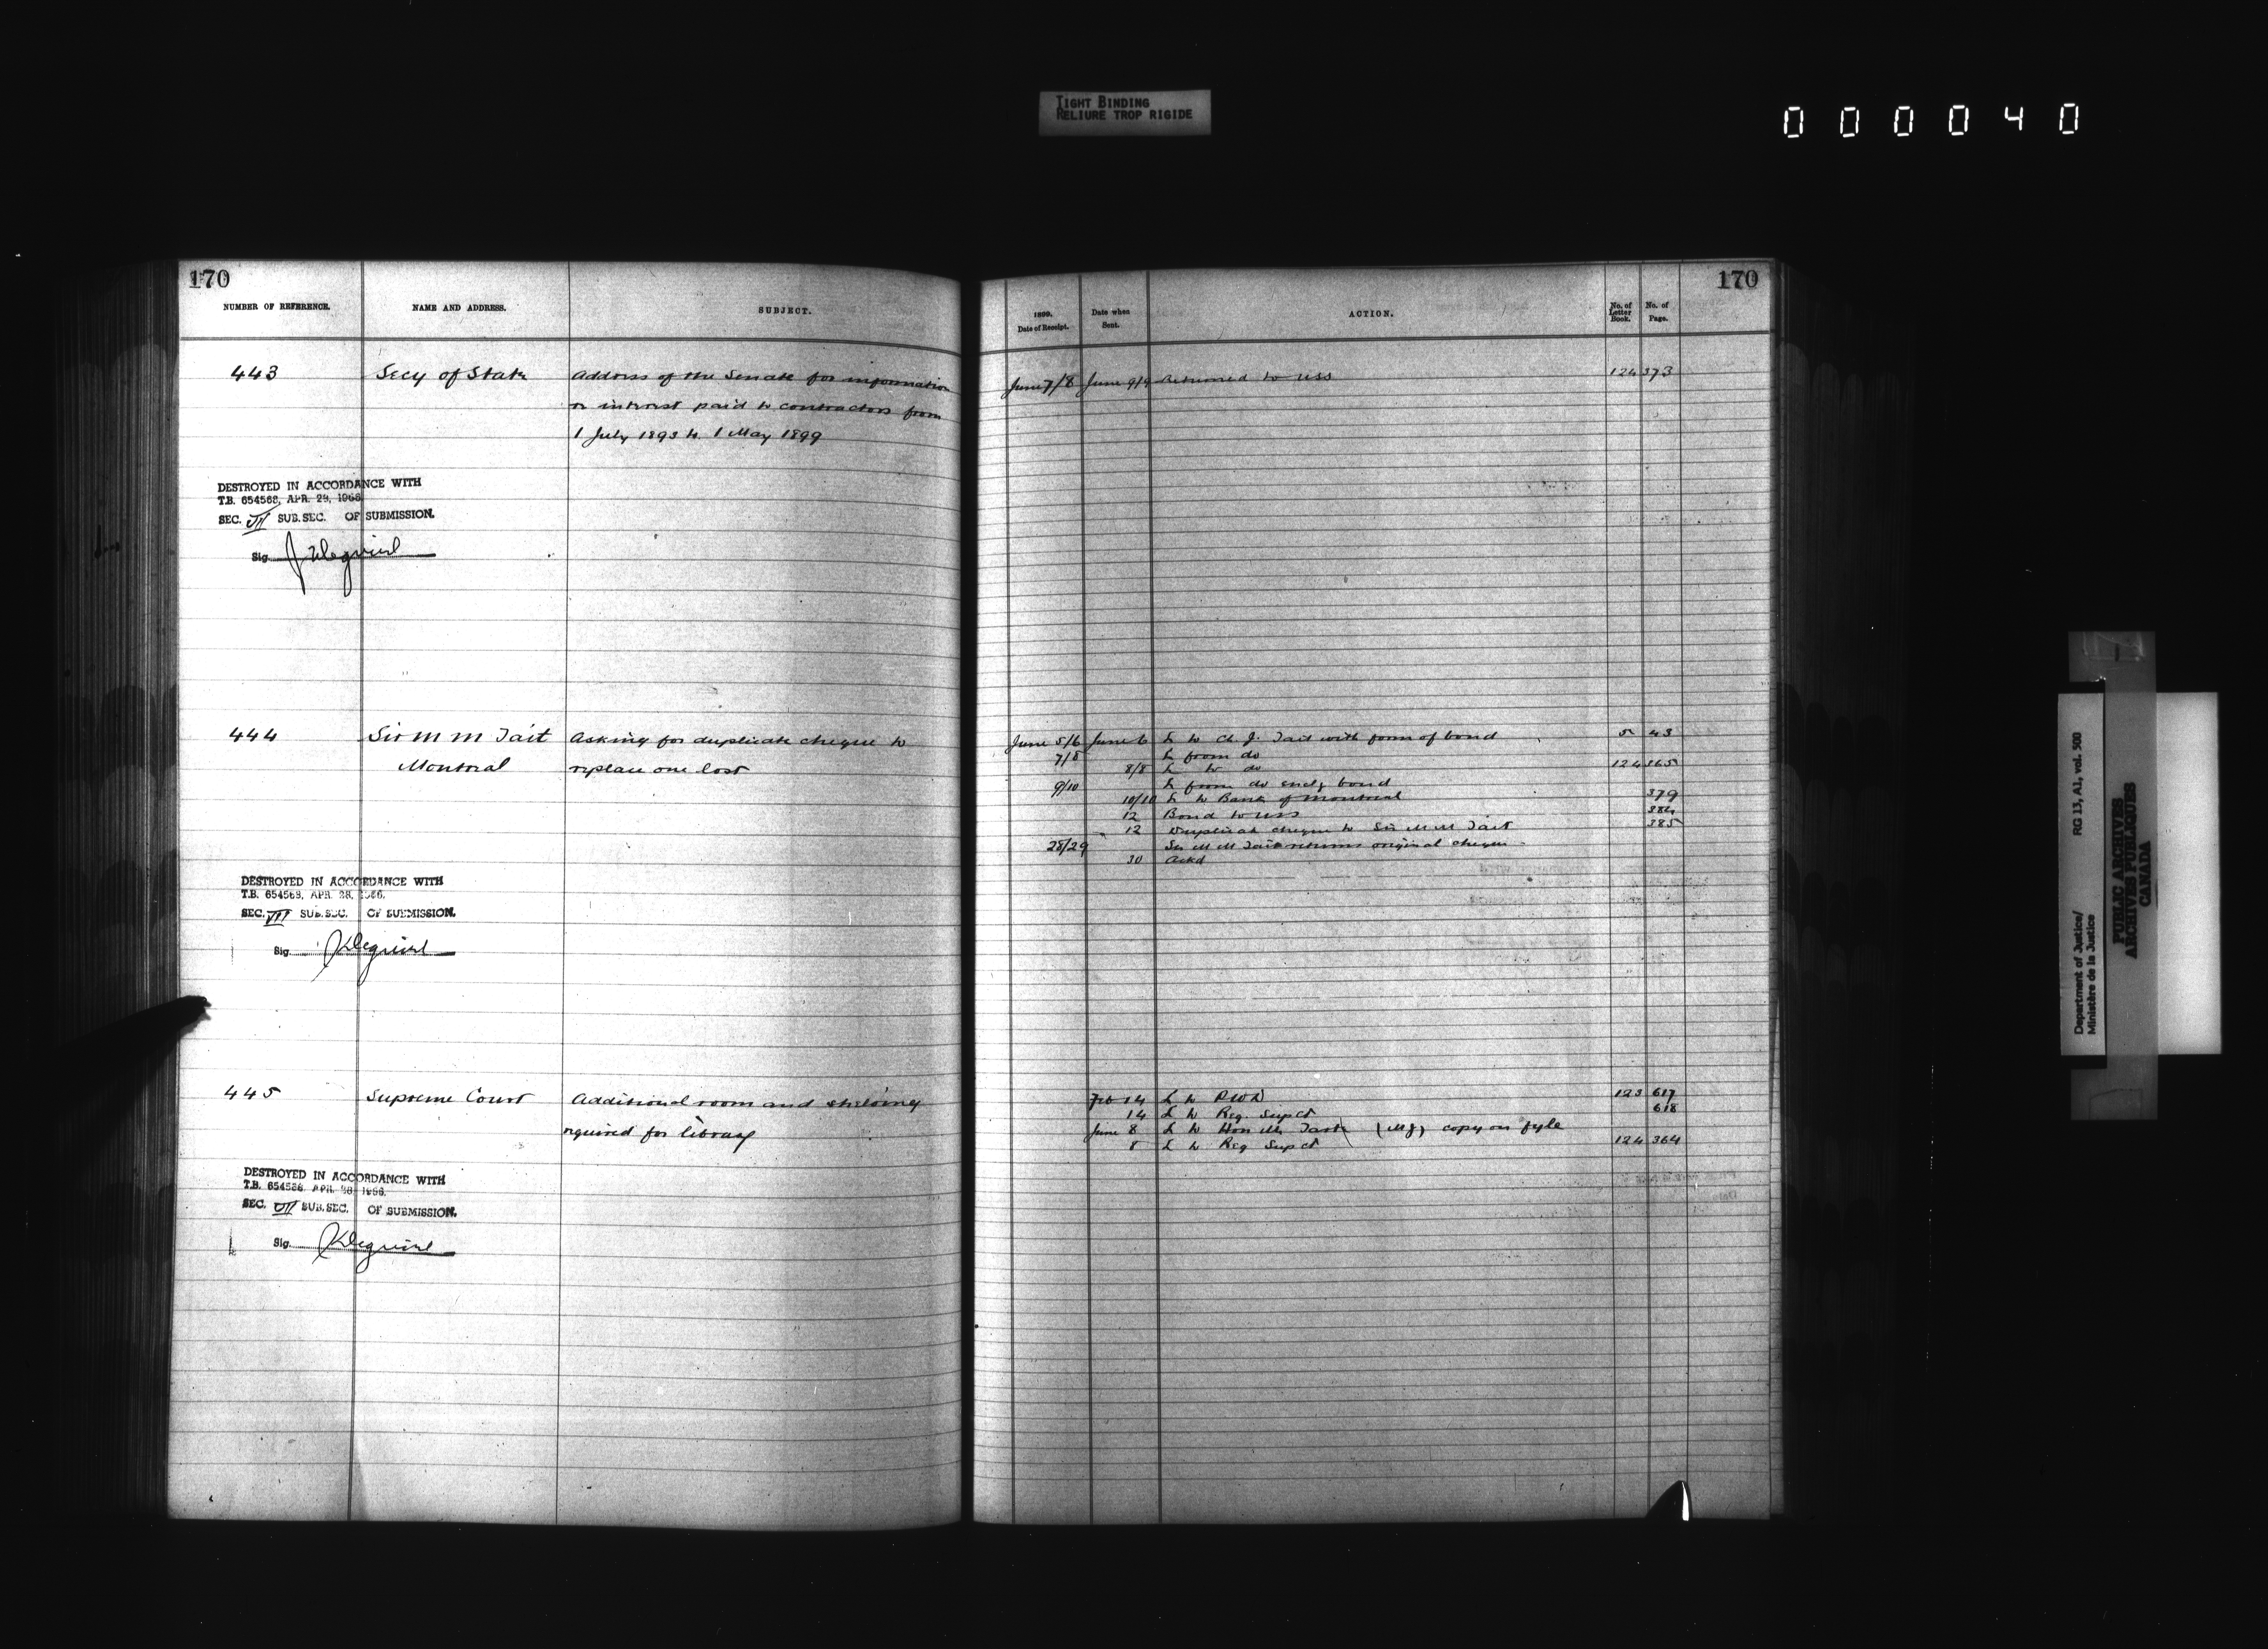 TIGHT BINDING
RELIURE TROP RIGIDE
000040
170
NUMBER OF REFERENCE. NAME AND ADDRESS. SUBJECT.
443 Secy of State Address of the Senate for information
on interest paid to contractors from
1 July 1893 to 1 May 1899
DESTROYED IN ACCORDANCE WITH
T.B. 654568, APR. 29, 1966
SEC. VII SUB. SEC. OF SUBMISSION.
Sig.
444 Sir M M Tait Asking for duplicate cheque to
Montreal replace one lost
DESTROYED IN ACCORDANCE WITH
T.B. 654568, APR. 28, 1966.
SEC. VII SUB. SEC. OF SUBMISSION.
Sig.
445 Supreme Court Additional room and shelving
required for library
DESTROYED IN ACCORDANCE WITH
T.B. 654568, APR. 28, 1966.
SEC. VII SUB. SEC. OF SUBMISSION.
Sig.
170
1899. Date of Receipt. Date when Sent. ACTION. No. of Letter Book. No. of Page.
June 7/8 June 9/9 Returned to USS 124 373
June 5/6 June 6 L to Ch. J. Tait with form of bond 5 43
7/8 L from do
8/8 L to do 124 365
9/10 L from do encl bond
10/10 L to Bank of Montreal 379
12 Bond to USS 384
" 12 Duplicate cheque to Sir M M Tait 385
28/29 Sir M M Tait returns original cheque
30 Ackd
Feb 14 L to PWD 123 617
14 L to Reg. Sup Ct 618
June 8 L to Hon Mr Tarte (MJ) copy on fyle
8 L to Reg Sup Ct 124 364
Department of Justice/ RG 13, A1, vol. 500
Ministère de la Justice
PUBLIC ARCHIVES
ARCHIVES PUBLIQUES
CANADA